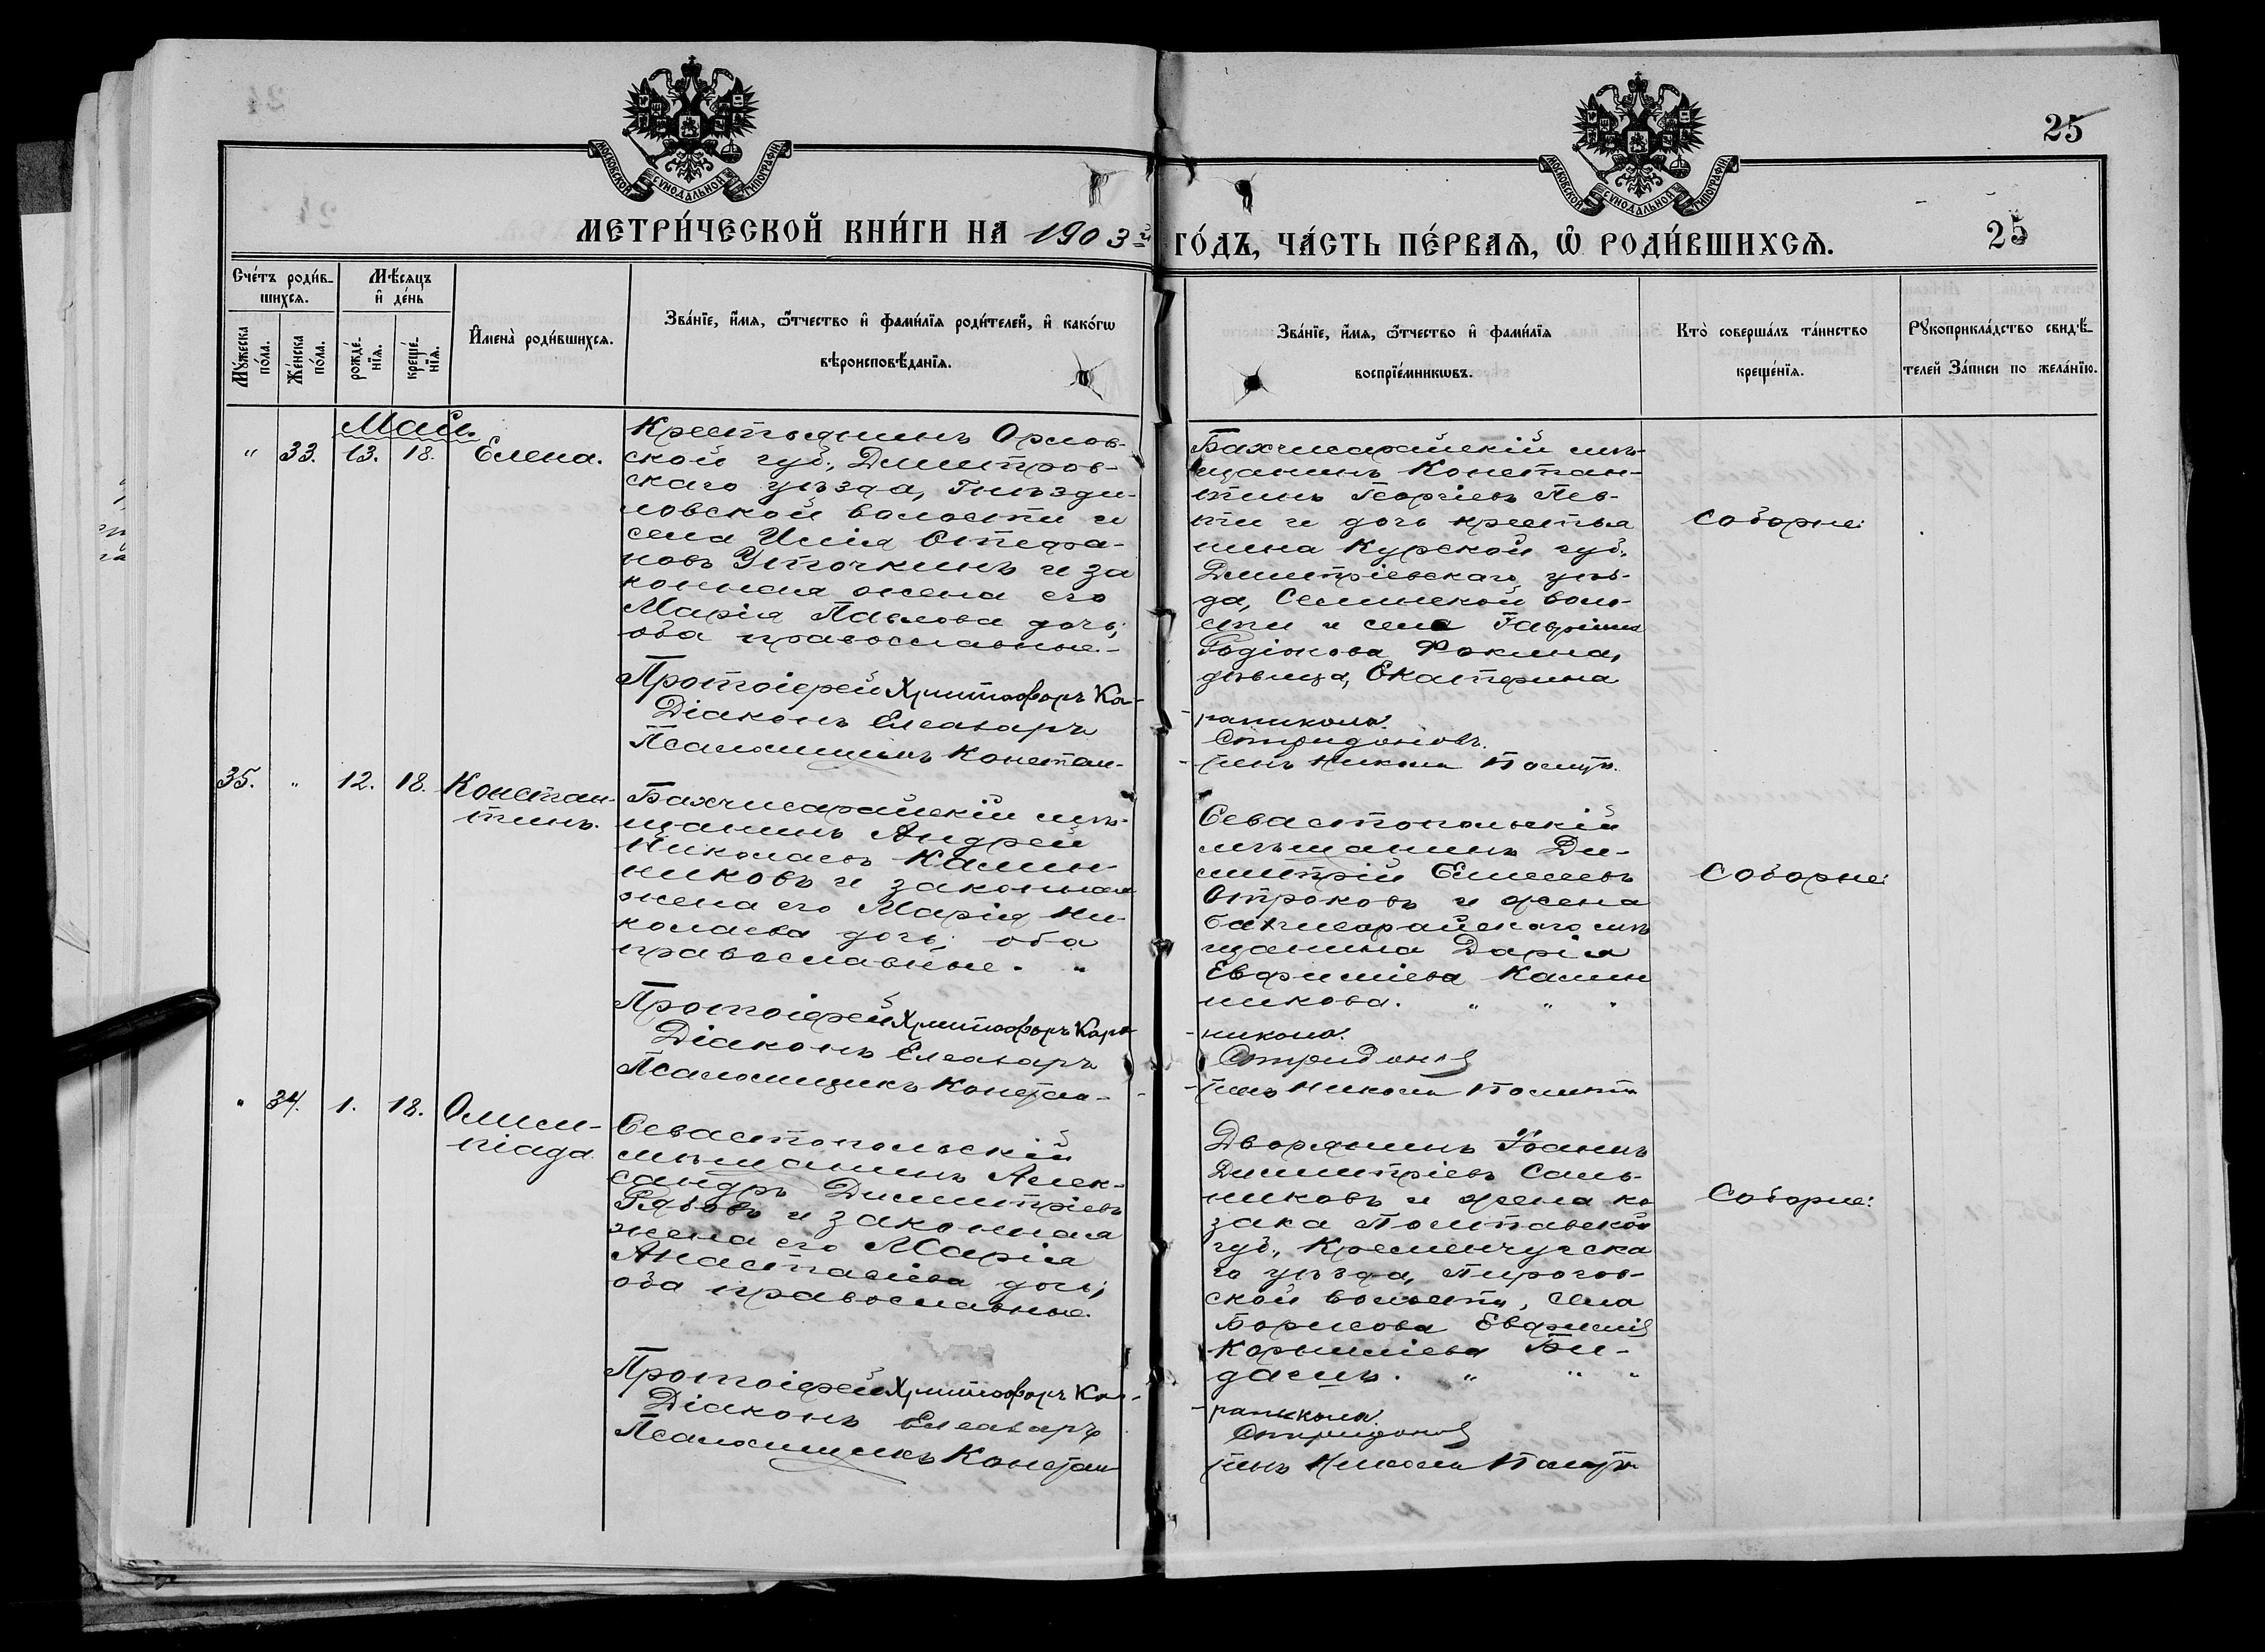 25
МОСКОВСКОЙ СѴНОДАЛЬНОЙ ТИПОГРАФІИ
МОСКОВСКОЙ СѴНОДАЛЬНОЙ ТИПОГРАФІИ
25
МЕТРИ́ЧЕСКОЙ КНИ́ГИ НА 1903й ГО́ДЪ, ЧА́СТЬ ПЕ́РВАѦ, Ѡ҆ РОДИ́ВШИХСѦ.
Сче́тъ роди́в-
шихсѧ.
Мꙋ́жеска по́ла.
Же́нска по́ла.
Мѣ́сѧцъ
и҆ де́нь
рожде́-
нїѧ.
креще́-
нїѧ.
И҆мена̀ роди́вшихсѧ.
Зва́нїе, и҆́мѧ, ѻ҆́тчество и҆ фами́лїѧ роди́телей, и҆ како́гѡ
вѣроисповѣ́данїѧ.
Зва́нїе, и҆́мѧ, ѻ҆́тчество и҆ фами́лїѧ
воспрїе́мникѡвъ.
Кто̀ соверша́лъ та́инство
креще́нїѧ.
Рꙋкоприкла́дство свидѣ́-
телей За́писи по жела́нїю.
Май.
" 33. 13. 18. Елена.
Крестьянинъ Орлов-
ской губ., Дмитров-
скаго уѣзда, Гнѣзди-
ловской волости и
села Илія Стефа-
новъ Уточкинъ и за
конная жена его
Марія Павлова дочь,
оба православные.-
Бахчисарайскій мѣ-
щанинъ Констан-
тинъ Георгіевъ
и дочь крестья
нина Курской губ.
Дмитріевскаго уѣз-
да, волo-
сти и села Гавріила
Родіонова Фокина,
дѣвица, Екатерина
Соборне:
Протоіерей Христофоръ Ка-
-рапиколa.
Діаконъ Елеазаръ
Спиридоновъ.
Псаломщикъ Констан-
-тинъ Никола
35. " 12. 18. Констан-
тинъ.
Бахчисарайскій мѣ-
щанинъ Андрей
Николаевъ Калин-
никовъ и законная
жена его Марія Ни-
колаева дочь; оба
православные. "
Севастопольскій
мѣщанинъ Ди-
митрій
Отроковъ и жена
бахчисарайскаго мѣ
щанина Дарія
Евфиміева Калин
никова. " " "
Соборне:
Протоіерей Христофоръ Карa-
-никола.
Діаконъ Елеазаръ
Спиридоновъ
Псаломщикъ Констан-
-тинъ Никола
" 34. 1. 18. Олим-
піада.
Севастопольскій
мѣщанинъ Алек-
сандръ Димитріевъ
Рябовъ и законная
жена его Марія
Анастасіева дочь;
оба православные.
Дворянинъ Іоаннъ
Димитріевъ Саль-
никовъ и жена ко
зака Полтавской
губ., Кременчугска
го уѣзда, Пирогов-
ской волости, села
Борисова Евфимія
Корниліева Би-
. " " "
Соборне:
Протоіерей Христофоръ Ка-
-рапикола.
Діаконъ Елеазаръ
Спиридоновъ
Псаломщикъ Констан-
тинъ Никола